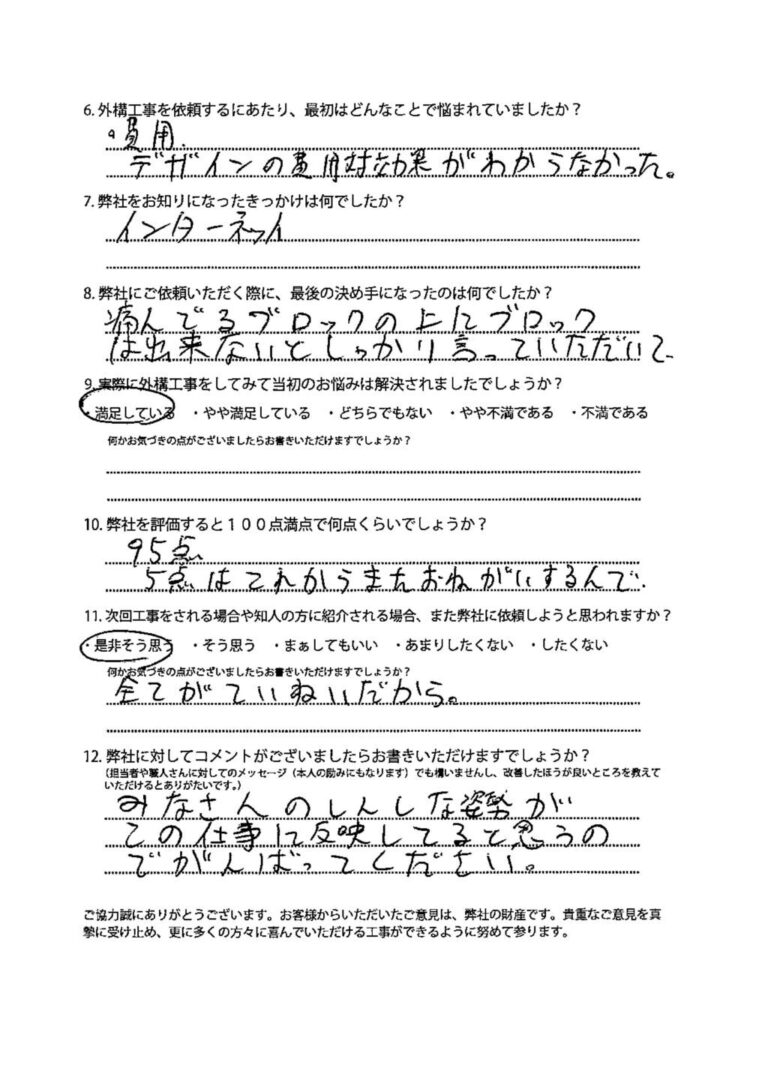 6. 外構工事を依頼するにあたり、最初はどんなことで悩まれていましたか？
。費用.
デザインの費用対効果がわからなかった。
7. 弊社をお知りになったきっかけは何でしたか？
インターネット
8. 弊社にご依頼いただく際に、最後の決め手になったのは何でしたか？
痛んでるブロックの上にブロック
は出来ないとしっかり言っていただいて、
9. 実際に外構工事をしてみて当初のお悩みは解決されましたでしょうか？
・満足している　・やや満足している　・どちらでもない　・やや不満である　・不満である
何かお気づきの点がございましたらお書きいただけますでしょうか？
10. 弊社を評価すると１００点満点で何点くらいでしょうか？
95点
5点はこれからまたおねがいするんで.
11. 次回工事をされる場合や知人の方に紹介される場合、また弊社に依頼しようと思われますか？
・是非そう思う　・そう思う　・まぁしてもいい　・あまりしたくない　・したくない
何かお気づきの点がございましたらお書きいただけますでしょうか？
全てがていねいだから。
12. 弊社に対してコメントがございましたらお書きいただけますでしょうか？
（担当者や職人さんに対してのメッセージ（本人の励みにもなります）でも構いませんし、改善したほうが良いところを教えて
いただけるとありがたいです。）
みなさんのしんしな姿勢が
この仕事に反映してると思うの
でがんばってください。
ご協力誠にありがとうございます。お客様からいただいたご意見は、弊社の財産です。貴重なご意見を真
摯に受け止め、更に多くの方々に喜んでいただける工事ができるように努めて参ります。